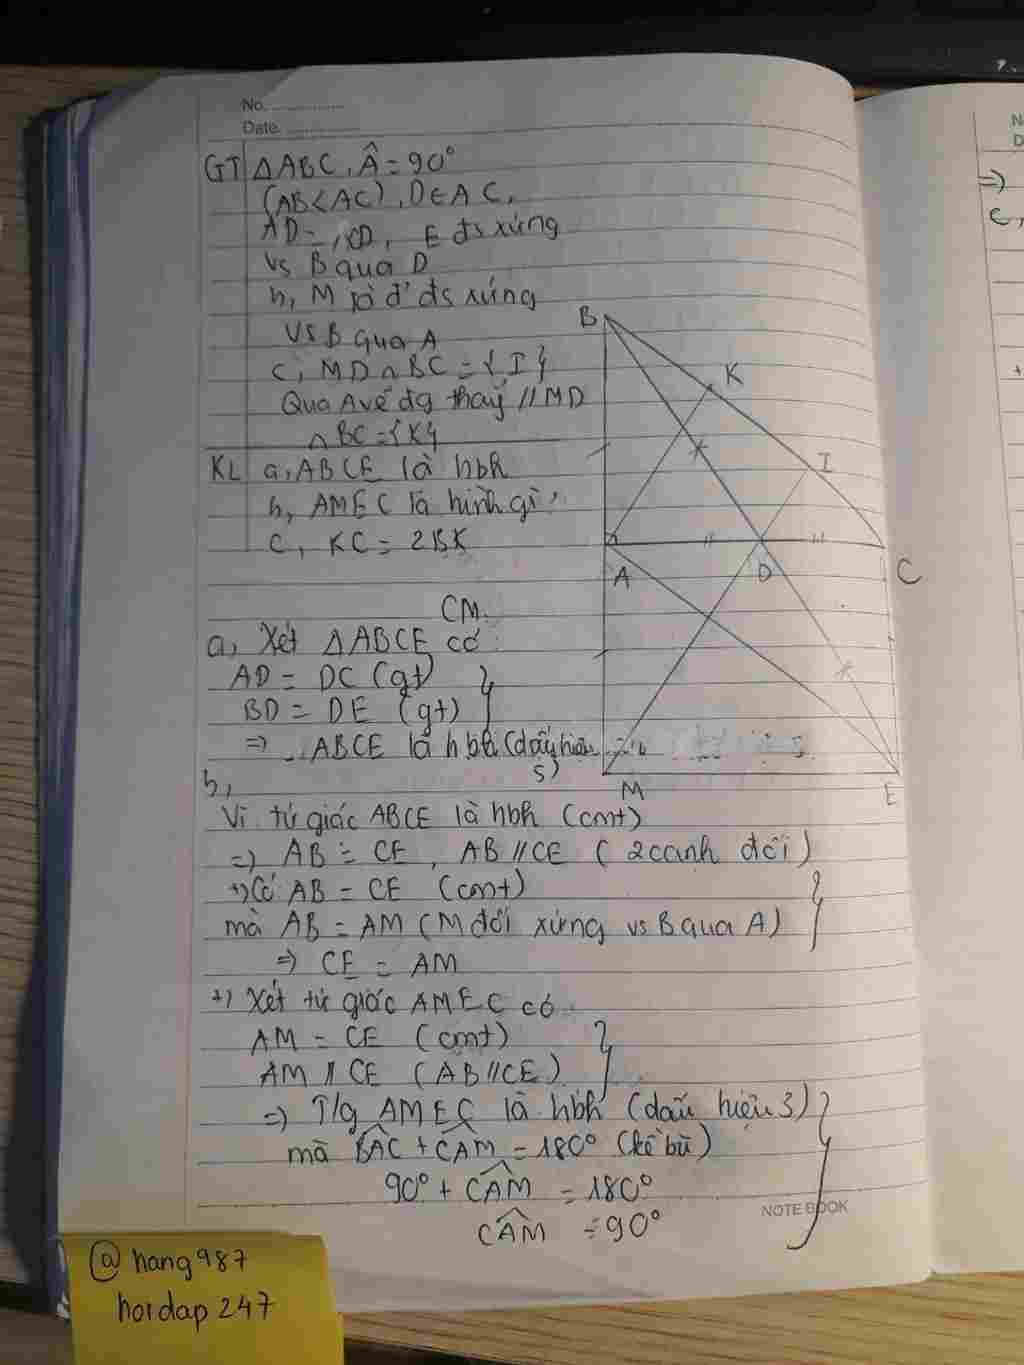 No.
Date.
GT ΔABC, Â = 90°
(AB < AC), D ∈ AC,
AD = CD, E đs xứng
vs B qua D
b, M là đ' đs xứng
vs B qua A
C, MD ∩ BC = {I}
Qua A vẽ đg thẳg // MD
∩ BC = {K}
KL a, ABCE là hbh
b, AMEC là hình gì?
C, KC = 2BK
B
K
I
A
D
C
M
E
CM.
a, Xét ΔABCE có:
AD = DC (gt)
BD = DE (gt)
=> ABCE là hbh (dấu hiệu
5)
b,
Vì tứ giác ABCE là hbh (cmt)
=) AB = CE, AB // CE (2 cạnh đối)
+) Có AB = CE (cmt)
mà AB = AM (M đối xứng vs B qua A)
=> CE = AM
+) Xét tứ giác AMEC có
AM = CE (cmt)
AM // CE (AB // CE)
=> T/g AMEC là hbh (dấu hiệu 3)
mà BÂC + CÂM = 180° (kề bù)
90° + CÂM = 180°
CÂM = 90°
NOTE BOOK
@hang987
hoidap247
N
D
=>
C,
+